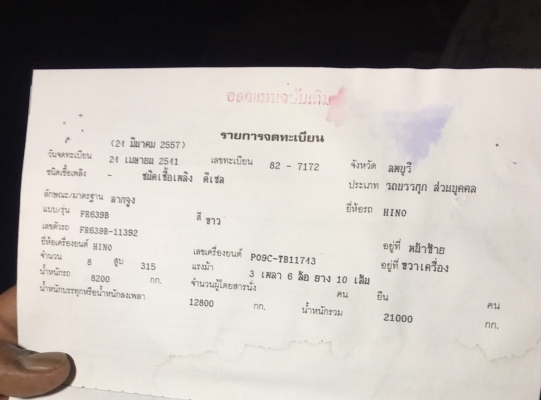 ออกแทนฉบับเดิม
รายการจดทะเบียน
(24 มีนาคม 2557)
วันจดทะเบียน 24 เมษายน 2541 เลขทะเบียน 82 - 7172 จังหวัด ลพบุรี
ชนิดเชื้อเพลิง - ชนิดเชื้อเพลิง ดีเซล ประเภท รถบรรทุก ส่วนบุคคล
ลักษณะ/มาตรฐาน ลากจูง ยี่ห้อรถ HINO
แบบ/รุ่น FR639B สี ขาว
เลขตัวรถ FR639B-11392 อยู่ที่ หน้าซ้าย
ยี่ห้อเครื่องยนต์ HINO เลขเครื่องยนต์ P09C-TB11743 อยู่ที่ ขวาเครื่อง
จำนวน 8 สูบ 315 แรงม้า 3 เพลา 6 ล้อ ยาง 10 เส้น
น้ำหนักรถ 8200 กก. จำนวนผู้โดยสารนั่ง คน ยืน คน
น้ำหนักบรรทุกหรือน้ำหนักลงเพลา 12800 กก. น้ำหนักรวม 21000 กก.